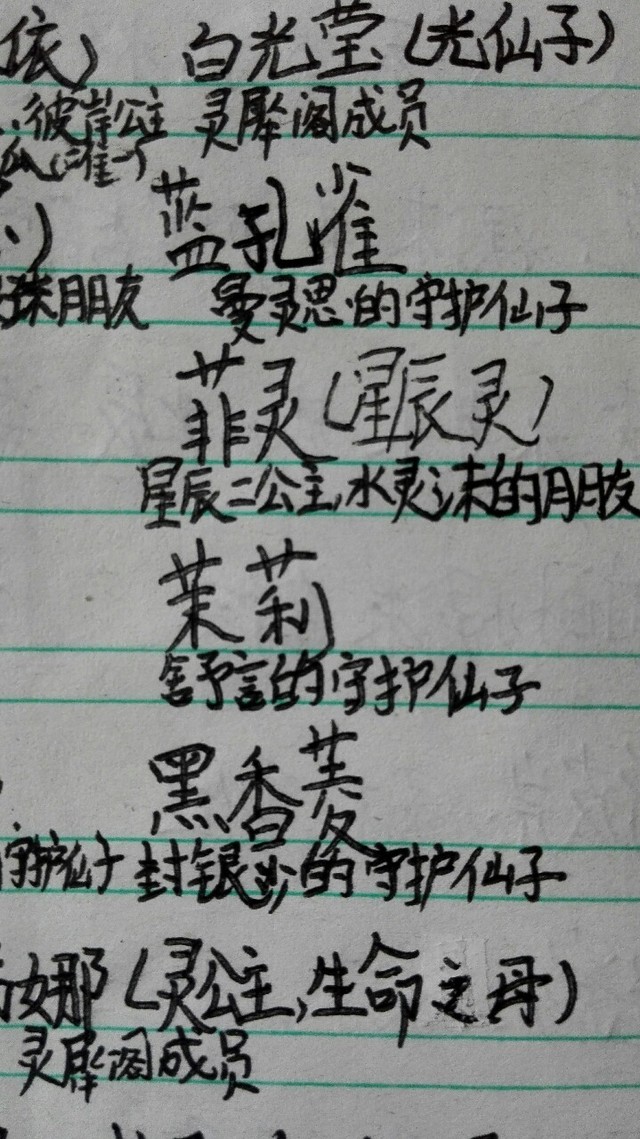 依） 白光莹（光仙子）
彼岸公主 灵犀阁成员
蓝孔雀
朋友 曼灵思的守护仙子
菲灵（星辰灵）
星辰二公主,水灵沫的朋友
茉莉
舒言的守护仙子
黑香菱
守护仙子 封银沙的守护仙子
娜（灵公主,生命之母）
灵犀阁成员